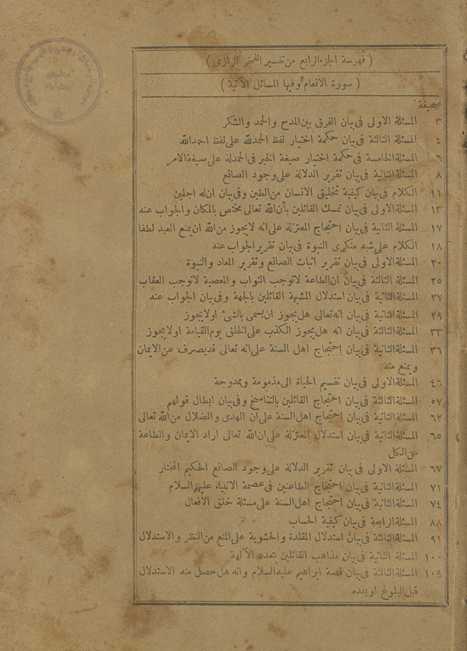 ( فهرسة الجزء الرابع من تفسير الفخر الرازى )
( سورة الانعام وفيها المسائل الآتية )
صحيفة
٣ المسئلة الاولى فى بيان الفرق بين المدح والحمد والشكر
٤ المسئلة الثالثة فى بيان حكمة اختيار لفظ الحمدلله على لفظ احمدالله
٦ المسئلة الخامسة فى حكمة اختيار صيغة الخبر فى الحمدلة على صيغة الامر
٨ المسئلة الثانية فى بيان تقرير الدلالة على وجود الصانع
١١ الكلام فى بيان كيفية تخليق الانسان من الطين وفى بيان ان له اجلين
١٣ المسئلة الاولى فى بيان تمسك القائلين بأن الله تعالى مختص بالمكان والجواب عنه
١٧ المسئلة الثانية فى بيان احتجاج المعتزلة على انه لايجوز من الله ان يمنع العبد لطفا
١٨ الكلام على شبه منكرى النبوة فى بيان تقرير الجواب عنه
٢٠ المسئلة الاولى فى بيان تقرير اثبات الصانع وتقرير المعاد والنبوة
٢٥ المسئلة الثالثة فى بيان ان الطاعة لاتوجب الثواب والمعصية لاتوجب العقاب
٢٧ المسئلة الثانية فى بيان استدلال المشبهة القائلين بالجهة وفى بيان الجواب عنه
٢٩ المسئلة الثانية فى بيان انه تعالى هل يجوز ان يسمى بالشئ اولايجوز
٣٣ المسئلة الثالثة فى بيان انه هل يجوز الكذب على الخلق يوم القيامة اولايجوز
٣٦ المسئلة الثانية فى بيان احتجاج اهل السنة على انه تعالى قديصرف عن الايمان
ويمنع منه
٤٦ المسئلة الاولى فى بيان تقسيم الحياة الى مذمومة وممدوحة
٥٧ المسئلة الثالثة فى بيان احتجاج القائلين بالتناسخ وفى بيان ابطال قولهم
٦٢ المسئلة الثانية فى بيان احتجاج اهل السنة على ان الهدى والضلال من الله تعالى
٦٥ المسئلة الثانية فى بيان استدلال المعتزلة على ان الله تعالى اراد الايمان والطاعة
من الكل
٦٧ المسئلة الاولى فى بيان تقرير الدلالة على وجود الصانع الحكيم المختار
٧١ المسئلة الثانية فى بيان احتجاج الطاعنين فى عصمة الانبياء عليهم السلام
٧٤ المسئلة الثانية فى بيان احتجاج اهل السنة على مسئلة خلق الافعال
٨٨ المسئلة الرابعة فى بيان كيفية الحساب
٩١ المسئلة الثالثة فى بيان استدلال المقلدة والحشوية على المنع من النظر والاستدلال
١٠٠ المسئلة الثانية فى بيان مذاهب القائلين بتعدد الآلهة
المسئلة الثالثة فى بيان قصة ابراهيم عليه السلام وانه هل حصل منه الاستدلال
قبل البلوغ اوبعده